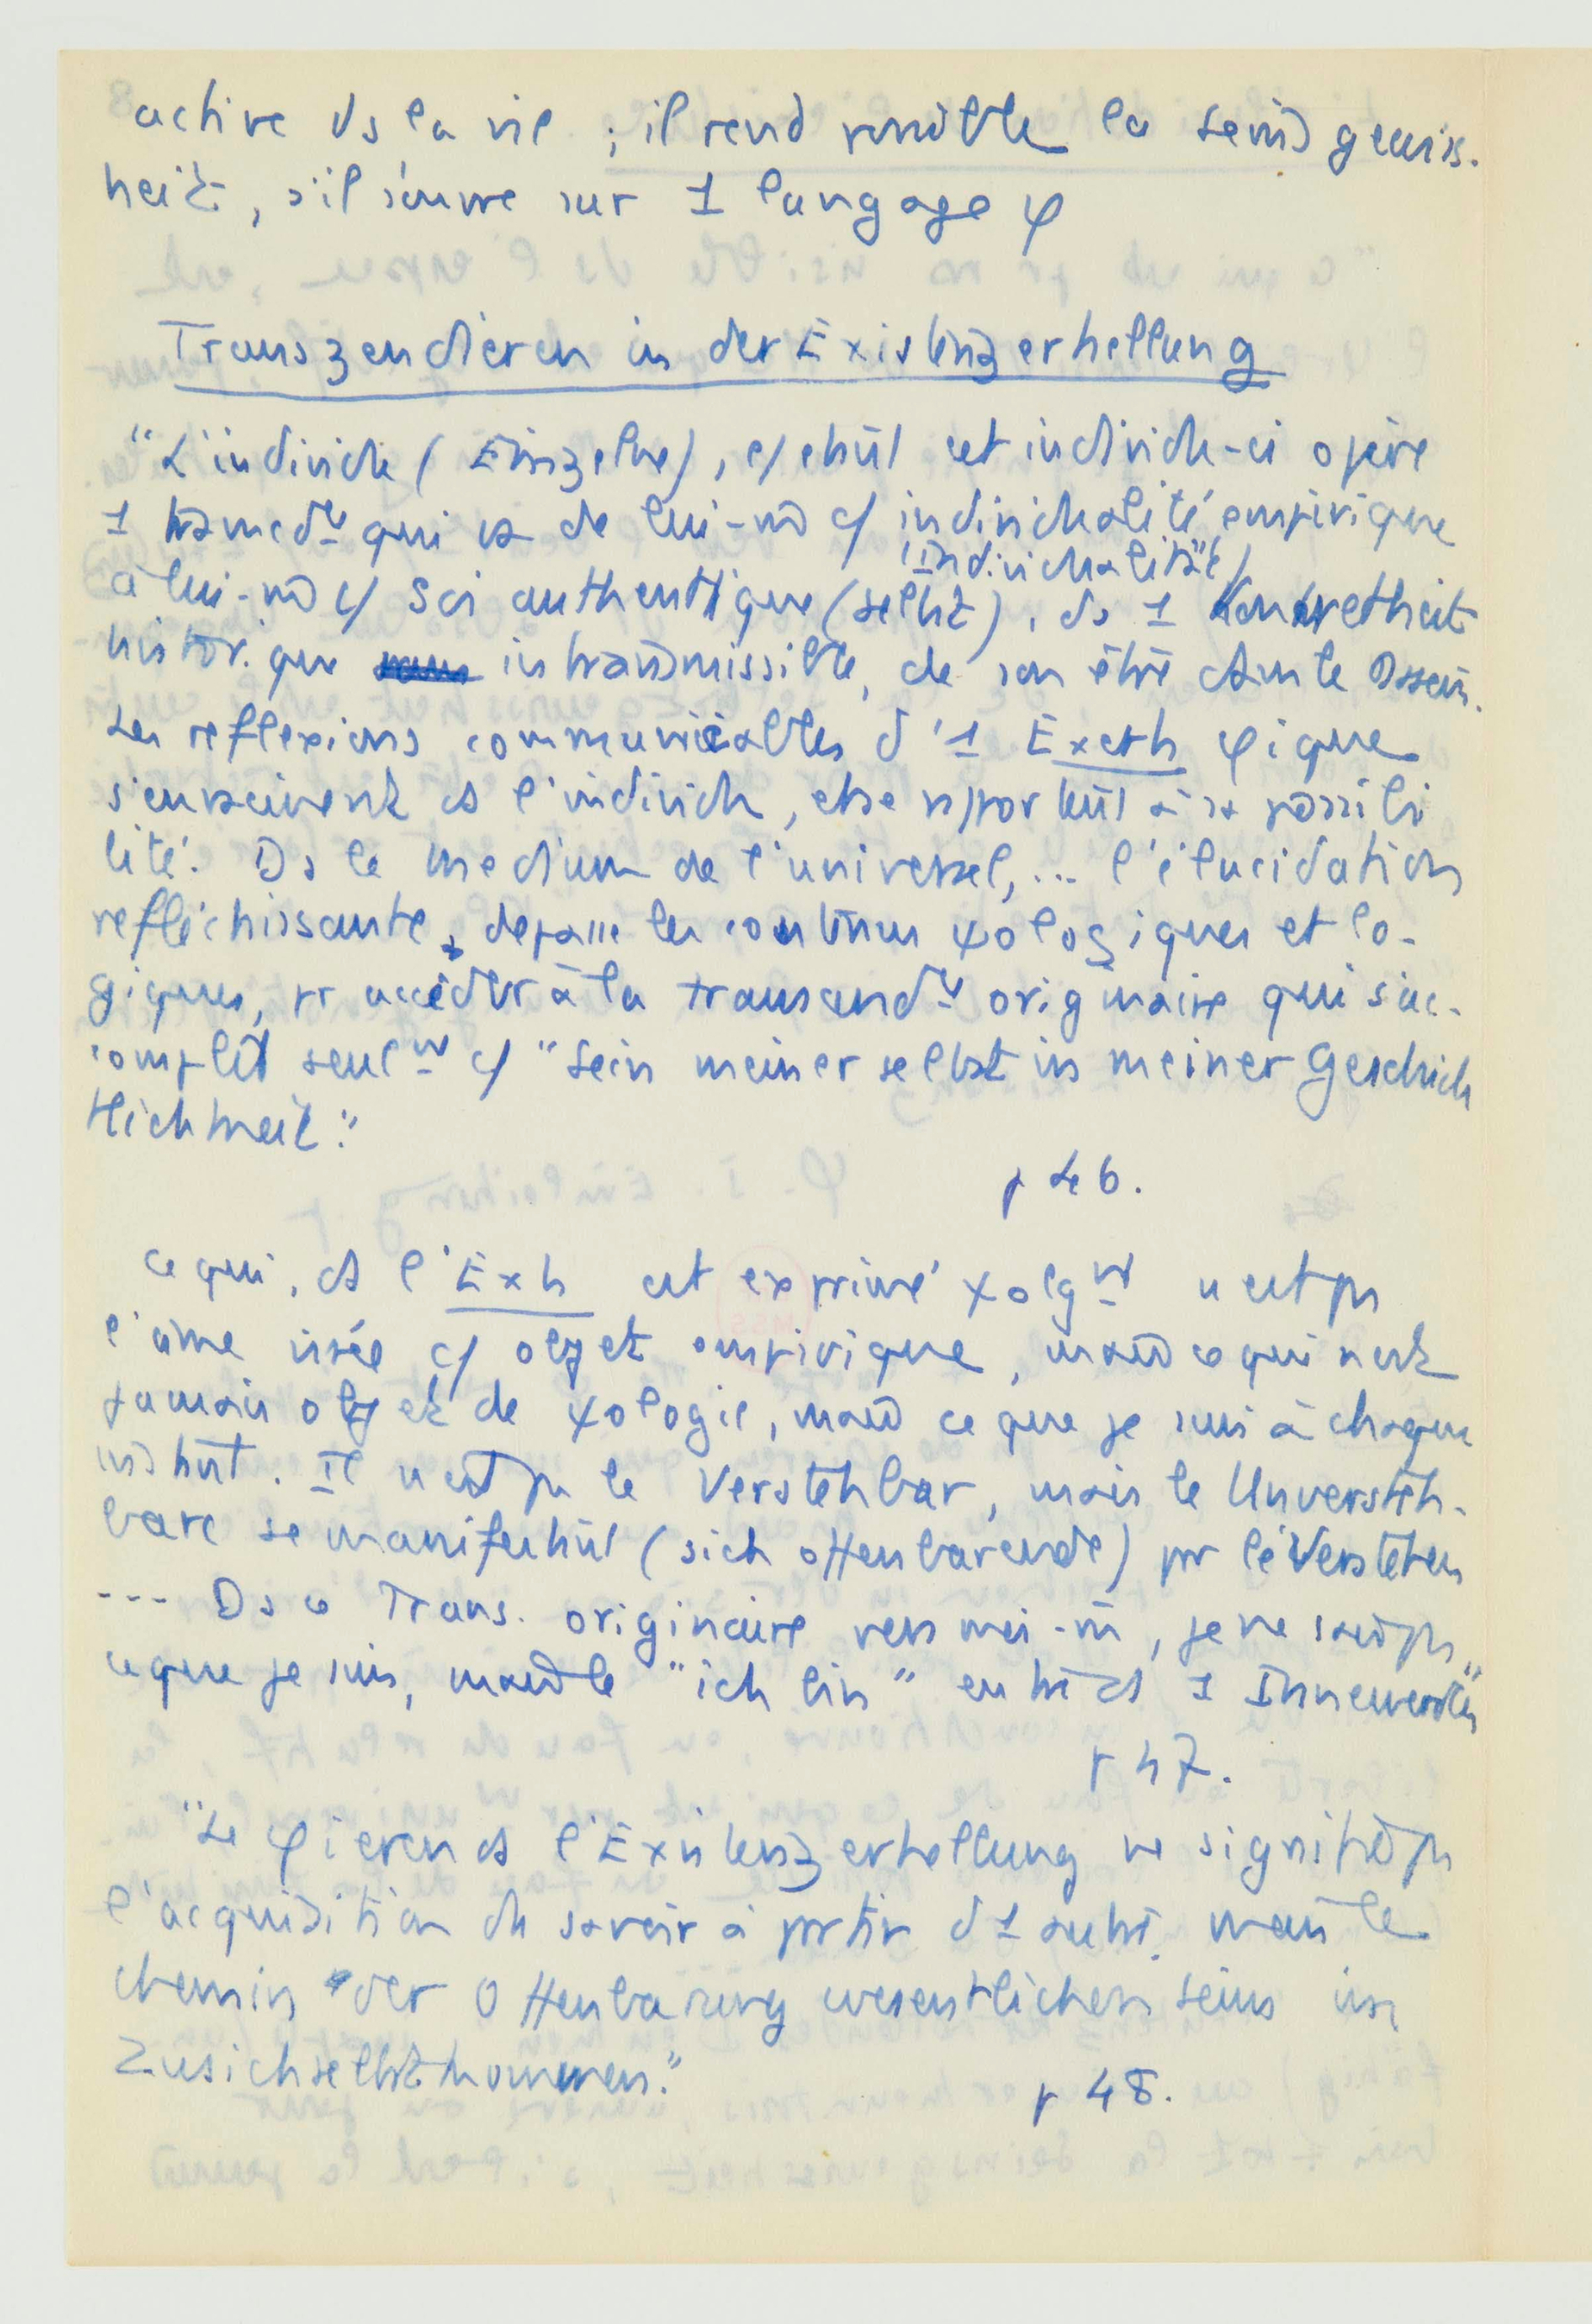 active ds la vie ; il rend possible la Seinsgewiss-
heit, s'il s'ouvre sur 1 langage φ
Transzendieren in der Existenzerhellung
"L'individu (Einzelne), c/ étant cet individu-ci opère
1 transcdce qui va de lui-m̄ c/ individualité empirique
(Individualität)
à lui-m̄ c/ Soi authentique (selbst), ds 1 Konkretheit
historique intransmissible, de son être dans le Dasein.
Les reflexions communicables d'1 Exerh φique
s'enracinent ds l'individu, et se rapportent à sa possibi
lité. Ds le medium de l'universel, ... l'élucidation
refléchissante, depasse les contenus ψologiques et lo-
giques, pr accéder à la transcendce originaire qui s'ac-
complit seult c/ "Sein meiner selbst in meiner Geschich
tlichkeit".
p 46.
Ce qui, ds l'Exh est exprimé ψolgt n'est ps
l'âme visée c/ objet empirique, mais ce qui n'est
jamais objet de ψologie, mais ce que je suis à chaque
instant. Il n'est ps le Verstehbar, mais le Unversteh-
bare se manifestant (sich offenbarende) pr le Verstehen
--- Ds ce Trans. originaire vers moi-m̄, je ne sais ps
ce que je suis, mais le "ich bin" entre ds 1 Innewerden"
p 47.
"Le φieren ds l'Existenzerhellung ne signifie ps
l'acquisition du savoir à partir d'1 autre, mais le
chemin der Offenbarung wesentlichen Seins im
Zusichselbstkommen."
p 48.